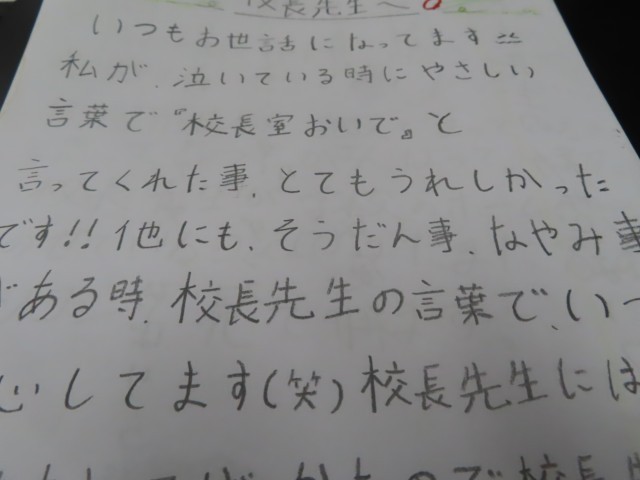 校長先生へ
いつもお世話になってます
私が、泣いている時にやさしい
言葉で『校長室おいで』と
言ってくれた事、とてもうれしかった
です!!他にも、そうだん事、なやみ事
がある時、校長先生の言葉で、いつ
心してます(笑)校長先生には